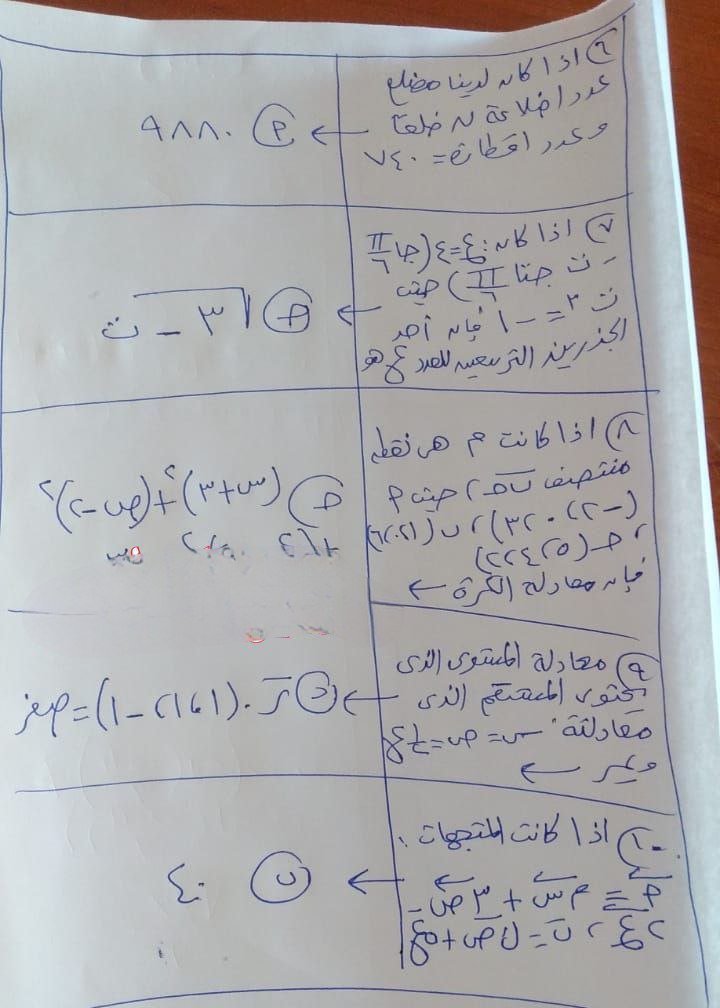 ٦) اذا كان لدينا مضلع
عدد اضلاعة ن ضلعا
وعدد اقطارة = ٧٤٠
← (P) ٩٨٨٠
٧) اذا كان: ع = ٤ (جا π/٦
- ت جتا π/٦) حيث
ت٢ = -١ فإن أحد
الجذرين التربيعين للعدد ع هو
← (ج) √٣ - ت
٨) اذا كانت م هى نقطة
منتصف
حيث P
فإن معادلة الكرة ←
(س+٣)٢ + (ص-٢)٢
٩) معادلة المستوى الذى
يحتوى المستقيم الذى
معادلتة س = ص = ١/٢ ع
ويمر ←
← (د) ر . (١،١،-١) = صفر
١٠) اذا كانت المتجهات
ج = م س + ٣ ص -
٢ع ، ن = ل ص + ٥ع
← (ن) ٤٠